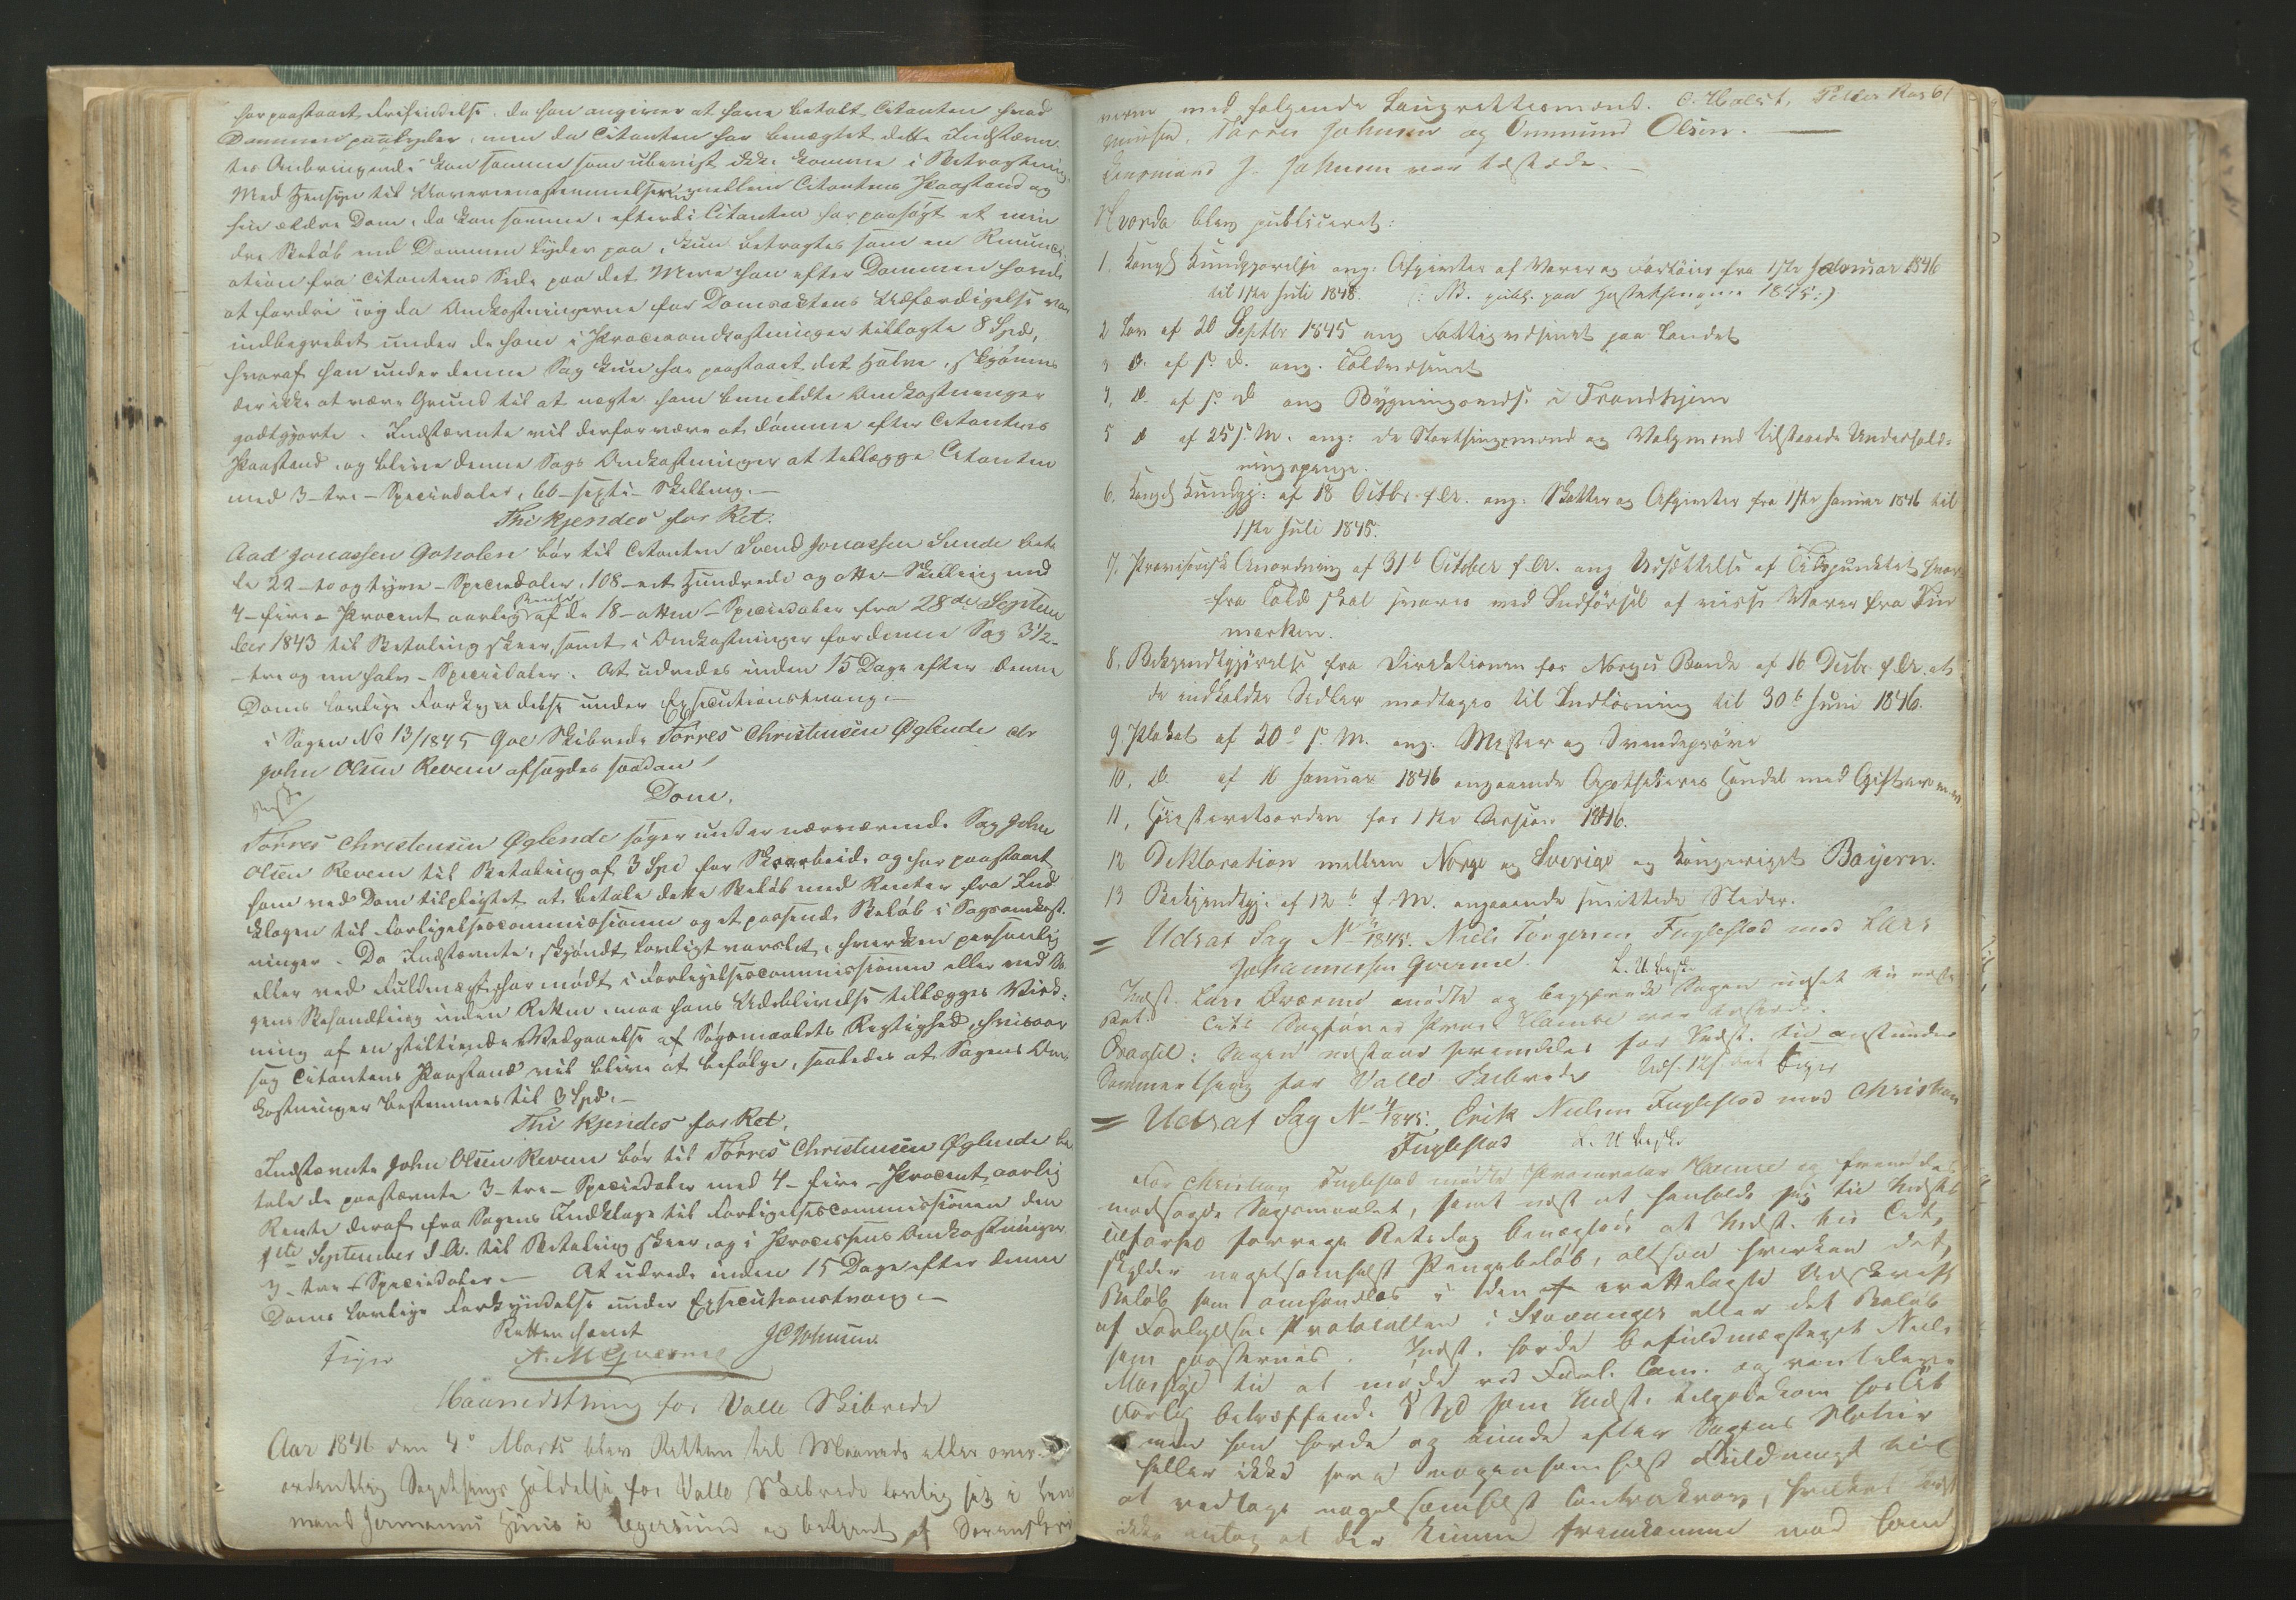 har paastaaet Frifindelse, da han angiver at have betalt Citanten hvad
Dommen paalyder, men da Citanten har benægtet dette Indstævn-
tes Anbringende kan samme som ubeviist ikke komme i Betragtning.
Med Hensyn til Uoverensstemmelsen mellem Citantens Paastand og
sin ældre Dom, da kan samme, efterdi Citanten har paasøgt et min
dre Beløb end Dommen lyder paa, kun betragtes som en Renunci-
ation fra Citantens Side paa det Mere han efter Dommen havde
at fordre; og da Omkostningerne for Domsaktens Udfærdigelse var
indbegrebet under de ham i Procesomkostninger tillagte 8 Spd,
hvoraf han under denne Sag kun har paastaaet det Halve, skjønnes
der ikke at være Grund til at nægte ham bemeldte Omkostninger
godtgjorte. Indstævnte vil derfor være at dømme efter Citantens
Paastand, og blive denne Sags Omkostninger at tillægge Citanten
med 3 - tre - Speciedaler, 66 - sexti - Skilling. -
Thi kjendes for Ret:
Aad Jonassen bør til Citanten Svend Jonassen Sunde beta
le 22 - to og tyve - Speciedaler, 108 - eet Hundrede og otte - Skilling med
4 - fire - Procent aarlig Rente af de 18 - atten - Speciedaler fra 28de Septem
ber 1843 til Betaling skeer, samt i Omkostninger for denne Sag 3 1/2 -
- tre og en halv - Speciedaler. At udredes inden 15 Dage efter denne
Doms lovlige Forkyndelse under Executionstvang. -
i Sagen No 13/1845 Skibrede Tørres Christensen Øglende ctr
John Olsen Reveim afsagdes saadan
Dom.
Tørres Christensen Øglende søger under nærværende Sag John
Olsen Reveim til Betaling af 3 Spd for Skoarbeide og har paastaaet
ham ved Dom tilpligtet at betale dette Beløb med Renter fra Ind
klagen til Forligelsescommissionen og et passende Beløb i Sagsomkost-
ninger. Da Indstævnte, skjøndt lovligt varslet, hverken personlig
eller ved Fuldmægtig har mødt i Forligelsescommissionen eller ved Sa
gens Behandling inden Retten, maa hans Udeblivelse tillægges Virk-
ning af en stiltiende Vedgaaelse af Søgsmaalets Rigtighed, hvisaar
sag Citantens Paastand vil blive at befølge, saaledes at Sagens Om
kostninger bestemmes til 3 Spd. -
Thi kjendes for Ret:
Indstævnte John Olsen Reveim bør til Tørres Christensen Øglende be
tale de paastævnte 3 - tre - Speciedaler med 4 - fire - Procent aarlig
Rente deraf fra Sagens Indklage til Forligelsescommissionen den
September d. A. til Betaling skeer, og i Processens Omkostninger
3 - tre - Speciedaler. - At udrede inden 15 Dage efter denne
Doms lovlige Forkyndelse under Executionstvang. -
Retten hævet
Feyer JC Johnsen
Maanedsthing for Valle Skibrede
Aar 1846 den 4de Marts blev Retten til Maaneds eller over-
ordentlig Sagethings Holdelse for Valle Skibrede lovlig sat i
mand Huus i Egersund og betjent af Sorenskri
veren med følgende Laugrettesmænd. O. Walst, Peder Ras 61
mussen, Tørres Johnsen og Ommund Olsen. -
Lensmand J. Johnsen var tilstede. -
Hvorda blev publiceret:
1. Kongel Kundgjørelse ang: Afgivter af Varer og Fartøier fra 1ste Januar 1846
til 1ste Juli 1848. (: NB. publ. paa Høstethingene 1845:)
2 Lov af 20 Septbr 1845 ang Fattigvæsenet paa Landet
3 D. af s. D. ang. Toldvæsenet
4, D. af s. D ang Bygningsvæs. i Trondhjem
5 D af 25 s. M. ang: de Storthingsmænd og Valgmænd tilstaaede Underhold-
ningspenge.
6. Kongel Kundgj: af 18 Octbr. f. A. ang: Skatter og Afgivter fra 1ste Januar 1846 til
1ste Juli 1845.
7. Provisorisk Anordning af 31te October f. A. ang Udsættelse af Tidspunktet hvor-
fra Told skal svares ved Indførsel af visse Varer fra Fin
marken.
8. Bekjendtgjørelse fra Directionen for Norges Bank af 16 Decbr. f. A. at
de indkaldte Sedler modtages til Indløsning til 30te Juni 1846.
9. Plakat af 20de s. M. ang. Mester og Svendeprøve
10. D. af 16 Januar 1846 angaaende Apothekeres Handel med Giftvarer
11, Høiesteretsorden for 1ste Session 1846.
12 Deklaration mellem Norge og Sverige og Kongeriget Bayern.
13 Bekjendtgj: af 12te f. M. angaaende smittede Steder.
= Udsat Sag No /1845. Niels Torgersen Fuglestad mod Lars
Johannessen Qværme. L. U. beskr.
Indst. Lars Qværme mødte og begjærede Sagen udsat til næste
Ret. Cit Sagfører Proc. Hamre var tilstede.
Eragtet: Sagen udstaar fremdeles for Indst. til anstundende
Sommerthing for Valle Skibrede Uds. Feyer
= Udsat Sag No 4/1845. Erik Nielsen Fuglestad mod Christian
Fuglestad L. U beskr
For Christian Fuglestad mødte Procurator Hamre og fremdeles
modsagde Søgsmaalet, samt næst at henholde sig til Indsts
Tilførsel forrige Retsdag benægtede at Indst. til Cit.
skylder nogetsomhelst Pengebeløb, altsaa hverken det
Beløb som omhandles i den irettelagte Udskrift
af Forligelses Protocollen i Stavanger eller det Beløb
som paastævnes. Indst. havde befuldmægtiget Niels
til at møde ved Forl. Com. og
Forlig betræffende 8 Spd som Indst. tilgodekom hos Cit
men han havde og kunde efter Sagens Natur
heller ikke have nogensomhelst Fuldmagt til
at vedtage nogetsomhelst Contrakrav, hvilket Indst
ikke antog at der kunne fremkomme mod ham